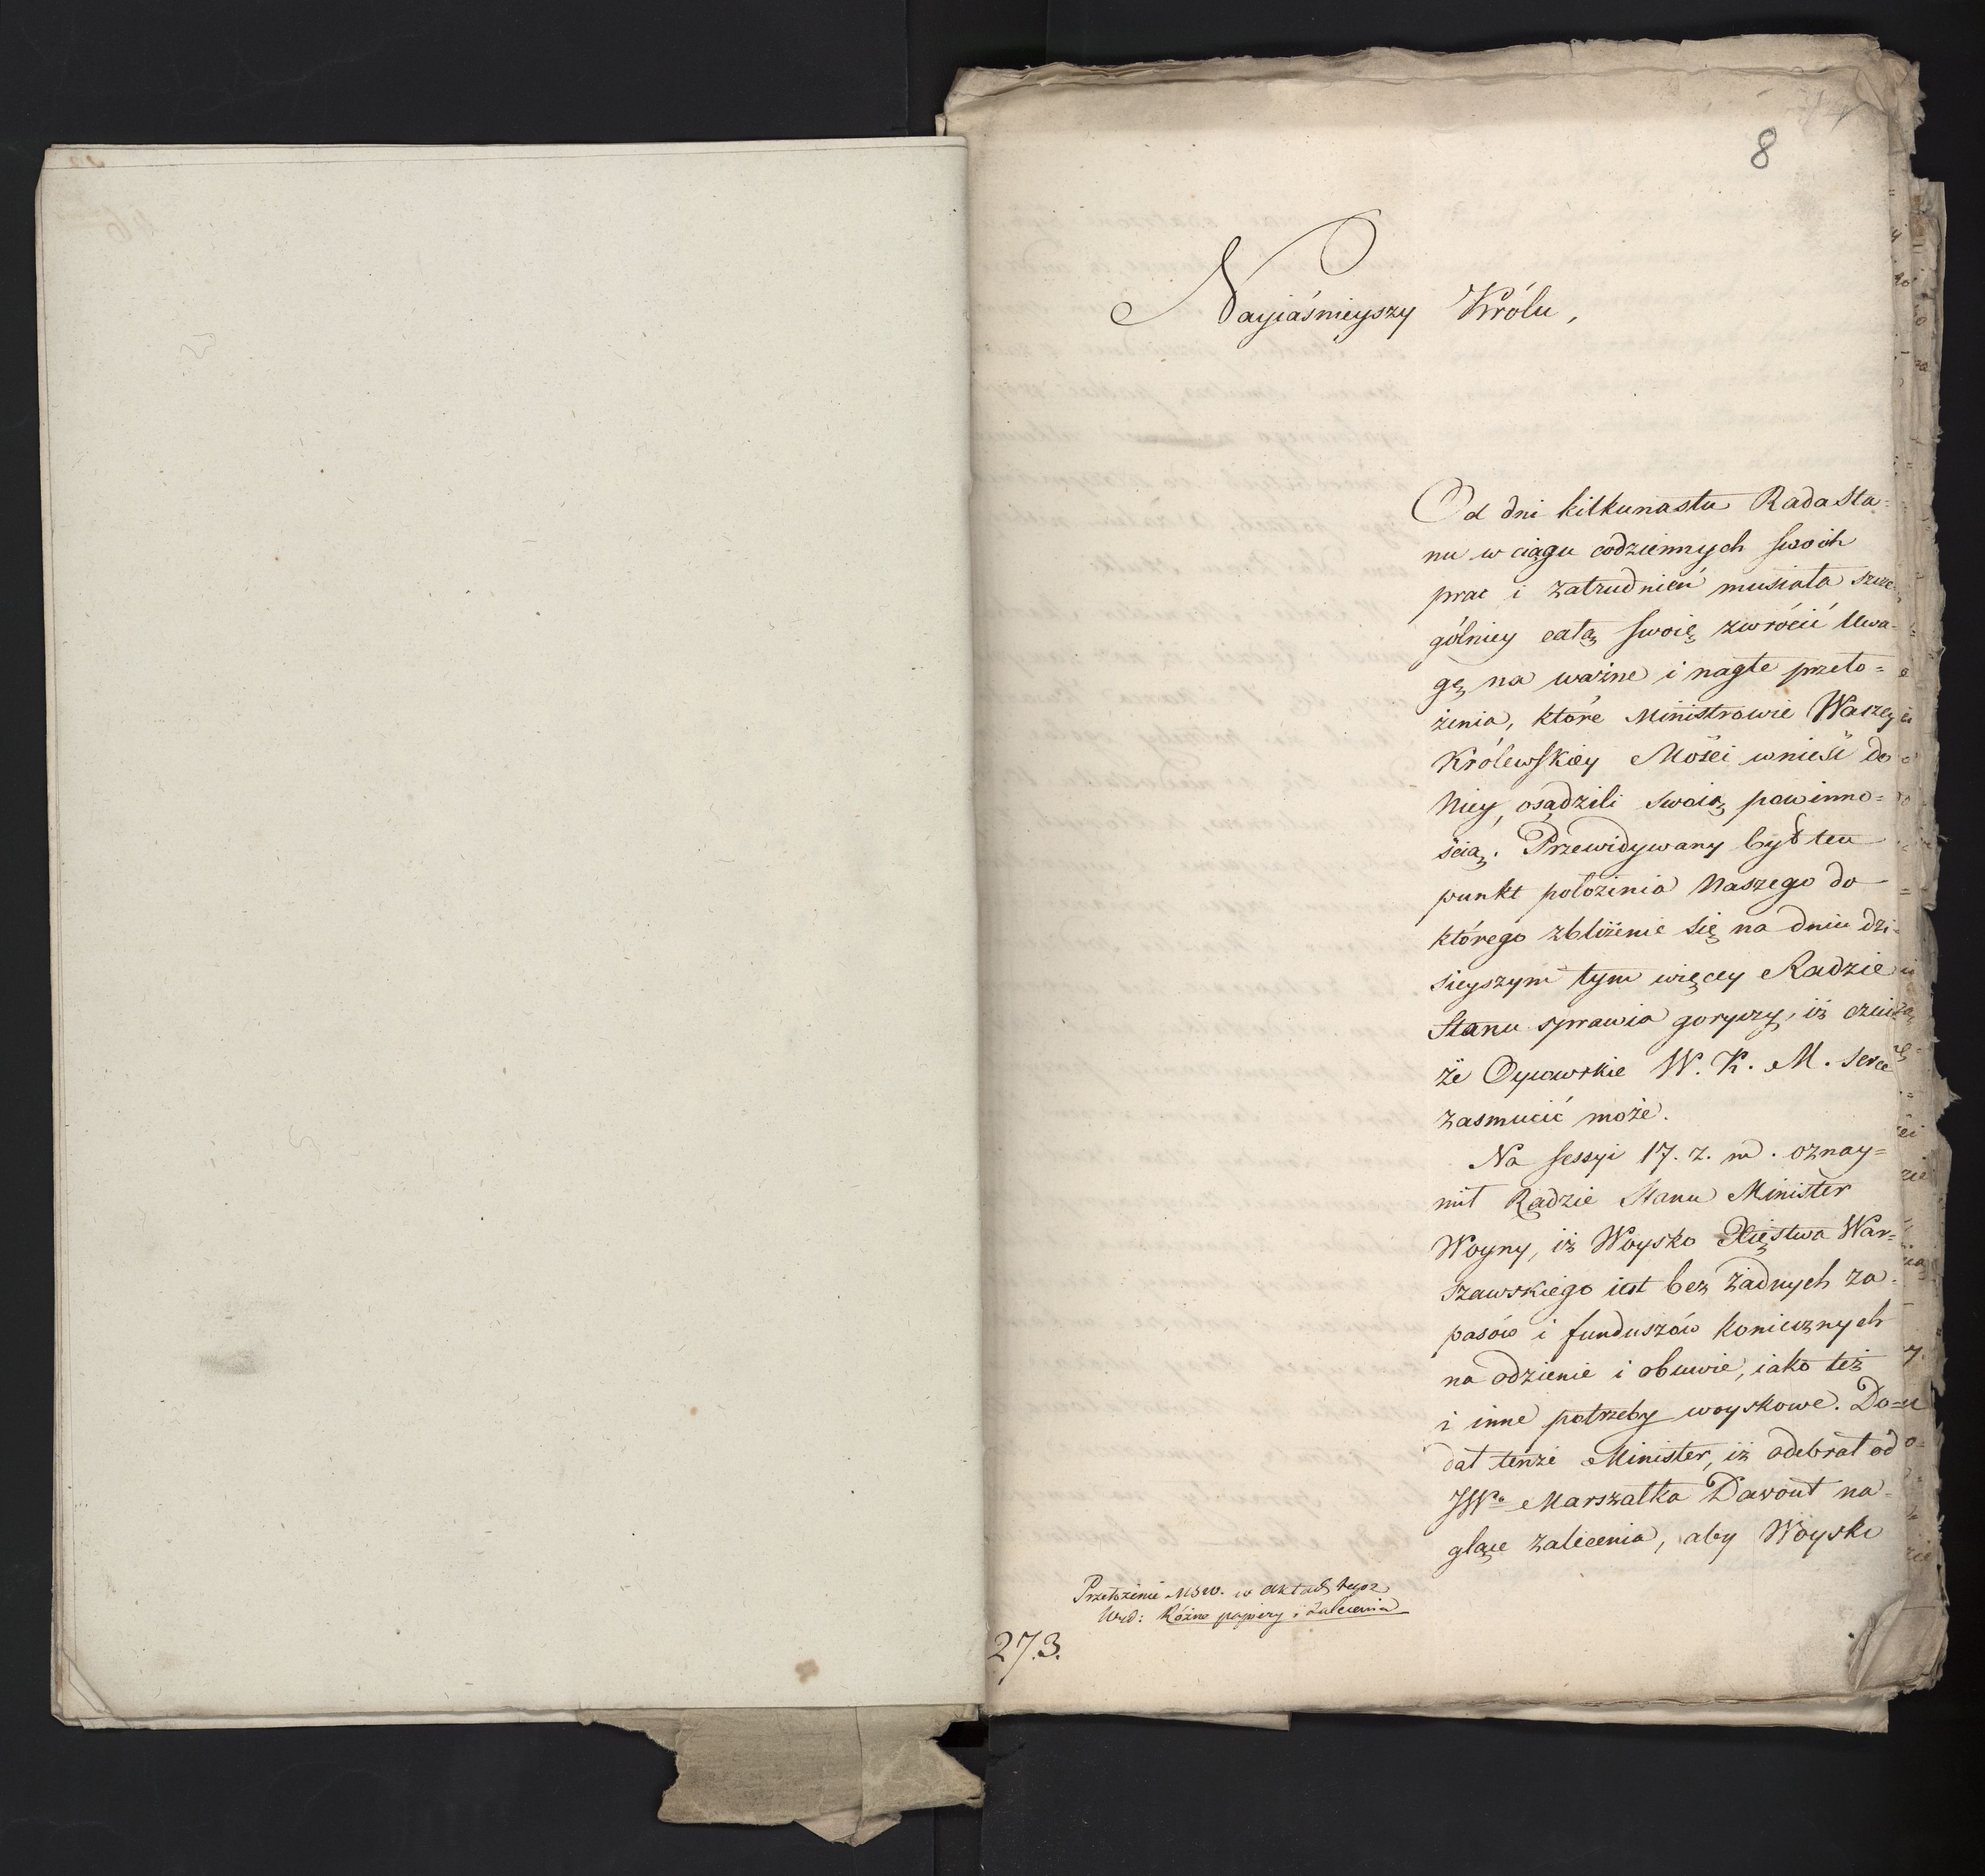 8
Nayiaśnieyszy Królu,
Od dni kilkunastu Rada Sta=
nu w ciągu codziennych swoich
prac i zatrudnień musiała szcze=
gólniey całą swoię zwrócić Uwa=
gę na ważne i nagłe przeło=
żenia, które Ministrowie Waszey
Królewskiey Mości wnieść do
Niey, osądzili swoią powinno=
ścią. Przewidywany był ten
punkt położenia Naszego do
którego zbliżenie się na dniu dzi=
sieyszym tym więcey Radzie
Stanu sprawia goryczy, iż czuie
że Oycowskie W. K. M. serce
zasmucić może.
Na sessyi 17. z. m. oznay=
mił Radzie Stanu Minister
Woyny, iż Woysko Xięstwa War=
szawskiego iest bez żadnych za=
pasów i funduszów koniecznych
na odzienie i obuwie, iako też
i inne potrzeby woyskowe. Do=
dał tenże Minister, iż odebrał od
JWo Marszałka Davout na=
glące zalecenia, aby Woysko
Przełożenie MSW. w aktach tegoż
Wyd: Różne papiery i Zalecenia
273.